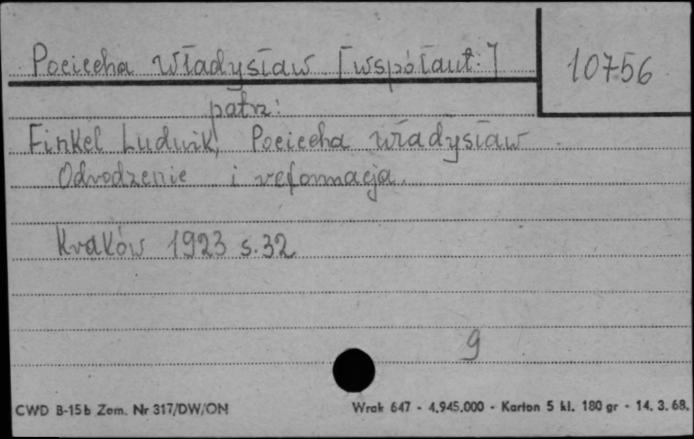 Pociecha Władysław [współaut.]
10756
patrz:
Finkel Ludwik, Pociecha Władysław
Odrodzenie i reformacja.
Kraków 1923 s.32
9
CWD B-15b Zam. Nr 317/DW/ON
Wrak 647 - 4.945.000 - Karton 5 kl. 180 gr - 14. 3. 68.